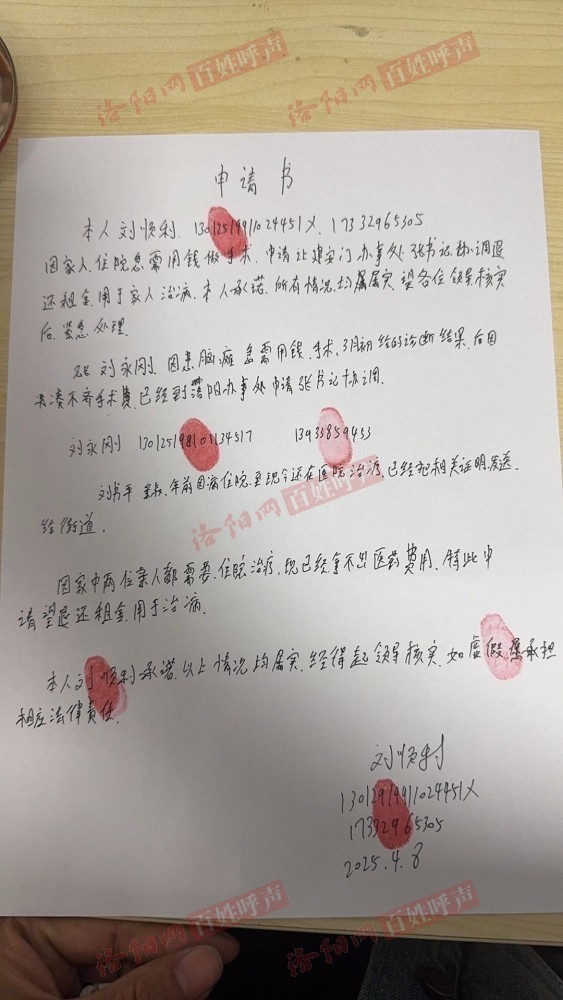 洛阳网 百姓呼声
洛阳网 百姓呼声
申请书
本人刘顺利. 13012519911024451X. 17332965305
因家人住院急需用钱做手术. 申请让建安门办事处张书记协调退
还租金用于家人治病. 本人承诺. 所有情况均属属实. 望各位领导核实
后紧急处理.
刘永刚 因患脑瘫急需用钱. 手术. 3月初给的诊断结果. 后因
凑不齐手术费. 已经到洛阳办事处申请张书记协调.
刘永刚 130125198101134517 13933859433
刘书平 年前因病住院. 至现今还在医院治疗. 已经把相关证明发送
给街道.
洛阳网 百姓呼声
因家中两位亲人都需要住院治疗. 现已经拿不出医药费用. 特此申
请望退还租金用于治病.
本人刘顺利承诺以上情况均属实. 经得起领导核实. 如虚假愿承担
相应法律责任.
刘顺利
13012919911024451X
17332965305
2025.4.8
洛阳网 百姓呼声
洛阳网 百姓呼声